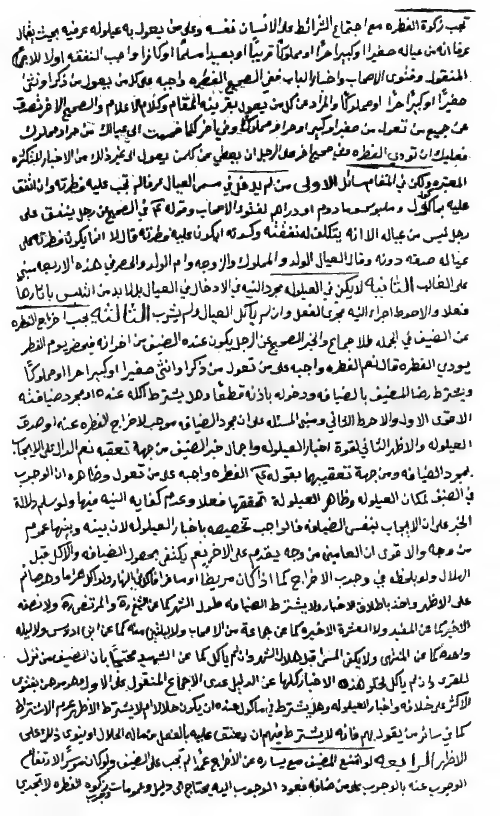 تجب زكوة الفطره مع اجتماع الشرائط على الانسان نفسه وعلى من يعول به عيلوله عرفيه بحيث يقال
عرفا انه من عياله صغيرا وكبيرا حرّا او مملوكا قريبًا او بعيدا مسلما او كافرا واجب النفقه اولا للاجماع
المنقول وفتوى الاصحاب واخبار الباب ففى الصحيح الفطره واجبه على كل من يعول من ذكر او انثى
صغيرًا او كبيرًا حرّا او مملوكًا والمراد عن كل من يعول بقرينه المقام وكلام الاعلام والصحيح الاخر تصدق
عن جميع من تعول من صغير او كبير او حر او مملوك وفى اخر كلما ضممت الى عيالك من حر او مملوك
فعليك ان تودى الفطره وفى صحيح اخر على الرجل ان يعطى عن كل من يعول الى غير ذلك من الاخبار الكثيره
المعتبره ولكن فى المقام مسائل الاولى من لم يدخل فى مسمى العيال عرفا لم تجب عليه فطرته وان انفق
عليه بماكول وملبوس وما دوم او دراهم لفتوى الاصحاب وقوله ع فى الصحيح عن رجل ينفق على
رجل ليس من عياله الا انه يتكلف له نفقته وكسوته ايكون عليه فطرته قال لا انما يكون فطرته على
عياله صدقه دونه وقال العيال الولد والمملوك والزوجه وام الولد والحصر فى هذه الاربعه مبنى
على الغالب الثانية لا يكفى فى العيلوله مجرد النيه فى الادخال فى العيال بل لابد من التلبس باثارها
فعلا والاحوط اجراء النيه مجرى الفعل وان لم ياكل العيال ولم يشرب الثالثة يجب اخراج الفطره
عن الضيف فى الجمله للاجماع والخبر الصحيح عن الرجل يكون عنده الضيف من اخوانه فيحضر يوم الفطر
يودى الفطره قال نعم الفطره واجبه على من تعول من ذكر او انثى صغيرا او كبيرا حرا او مملوكا
ويشترط رضا المضيف بالضيافه ودخوله باذنه قطعًا وهل يشترط اكله عنده او مجرد ضيافته
الاقوى الاول والاحوط الثانى ومبنى المسئله على ان مجرد الضيافه موجب لاخراج الفطره عنه او صدق
العيلوله والاظهر الثانى لقوة اخبار العيلوله واجمال خبر الضيف من جهة تعقبه نعم الدال على الايجاب
بمجرد الضيافه ومن جهة تعقيبها بقوله ع الفطره واجبه على من تعول وظاهره ان الوجوب
فى الضيف لمكان العيلوله وظاهر العيلولة تحققها فعلا وعدم كفايه النيه منها ولو سلم دلالة
الخبر على ان الايجاب بنفس الضيافه فالواجب تخصيصه باخبار العيلوله لان بينه وبينها عموم
من وجه والاقوى ان العامين من وجه يقدم على الاخر نعم يكتفى بحصول الضيافه والاكل قبل
الهلال ولو بلحظه فى وجوب الاخراج كما اذا كان مريضا او مسافرا فاكل بالنهار ولو اكل حراما وهو صائم
على الاظهر واخذ باطلاق الاخبار ولا يشترط الضيافه طول الشهر كما عن الشيخ ره والمرتضى ره ولا نصفه
الاخير كما عن المفيد ولا العشرة الاخيره كما عن جماعة من الاصحاب ولا ليلتين منه كما عن ابن ادريس ولا ليله
واحده كما عن المنتهى ولا يكفى المسمى قبل هلال الشهر وان لم ياكل كما عن الشهيد محتجًا بان المضيف من نزل
للقرى وان لم ياكل لخلو هذه الاخبار كلها عن الدليل عدى الاجماع المنقول على الاول وهو موهن بفتوى
الاكثر على خلافه واخبار العيلوله وهل يشترط فى ماكول عنده ان يكون حلالا ام لا يشترط الاظهر عدم الاشتراط
كما فى سائر من يقول بهم فانه لا يشترط فيهم ان ينفق عليه بالفعل من ماله الحلال او ينوى ذلك على
الاظهر الرابعة لو امتنع المضيف مع يساره عن الاخراج عمدا لم تجب على الضيف ولو كان موسرًا لارتفاع
الوجوب عنه بالوجوب على من ضافه فعود الوجوب اليه يحتاج الى دليل وعمومات وجوب زكوه الفطره لا تجدى